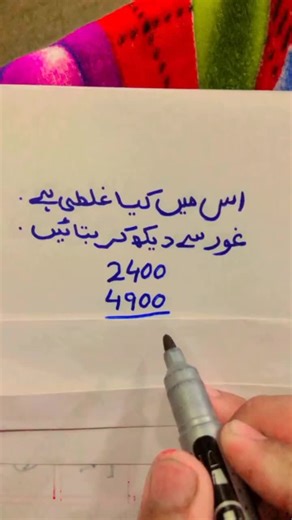 اس میں کیا غلطی ہے.
غور سے دیکھ کر بتائیں.
2400
4900